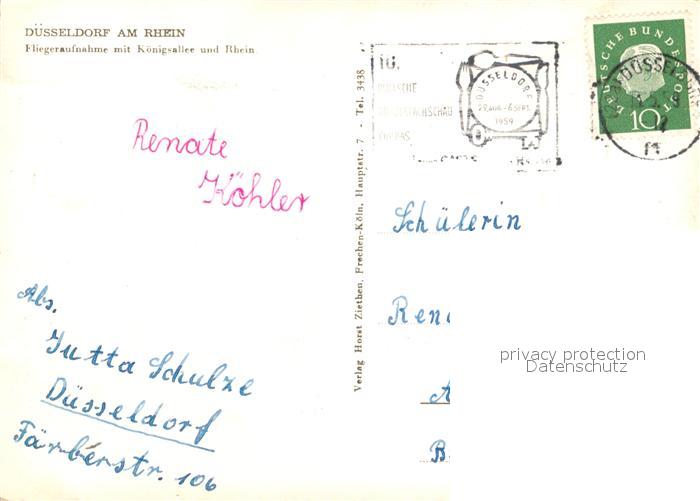 DÜSSELDORF AM RHEIN
Fliegeraufnahme mit Königsallee und Rhein
Renate
Köhler
Abs.
Jutta Schulze
Düsseldorf
Färberstr. 106
Verlag Horst Ziethen, Frechen-Köln, Hauptstr. 7 - Tel. 3438
10.
DÜSSELDORF
29. AUG. - 6. SEPT.
1959
DEUTSCHE BUNDESPOST
10
DÜSSELDORF
Schülerin
Ren
A
B
privacy protection
Datenschutz